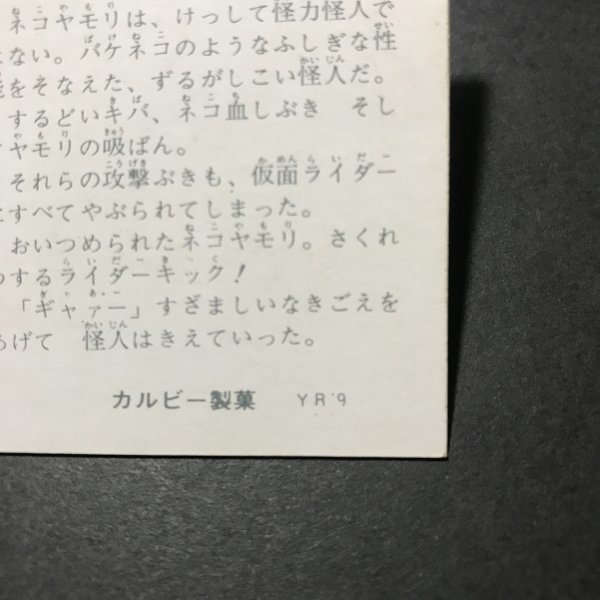 ネコヤモリは、けっして怪力怪人で
ない。バケネコのようなふしぎな性
をそなえた、ずるがしこい怪人だ。
するどいキバ、ネコ血しぶき　そし
ヤモリの吸ばん。
それらの攻撃ぶきも、仮面ライダー
すべてやぶられてしまった。
おいつめられたネコヤモリ。さくれ
するライダーキック！
「ギャァー」すざましいなきごえを
あげて　怪人はきえていった。
カルビー製菓　YR'9